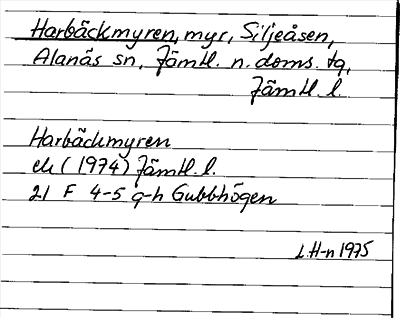 Harbäckmyren, myr, Siljeåsen,
Alanäs sn, Jämtl. n. doms. tg,
Jämtl. l.
Harbäckmyren
ek (1974) Jämtl. l.
21 F 4-5 g-h Gubbhögen
L H-n 1975